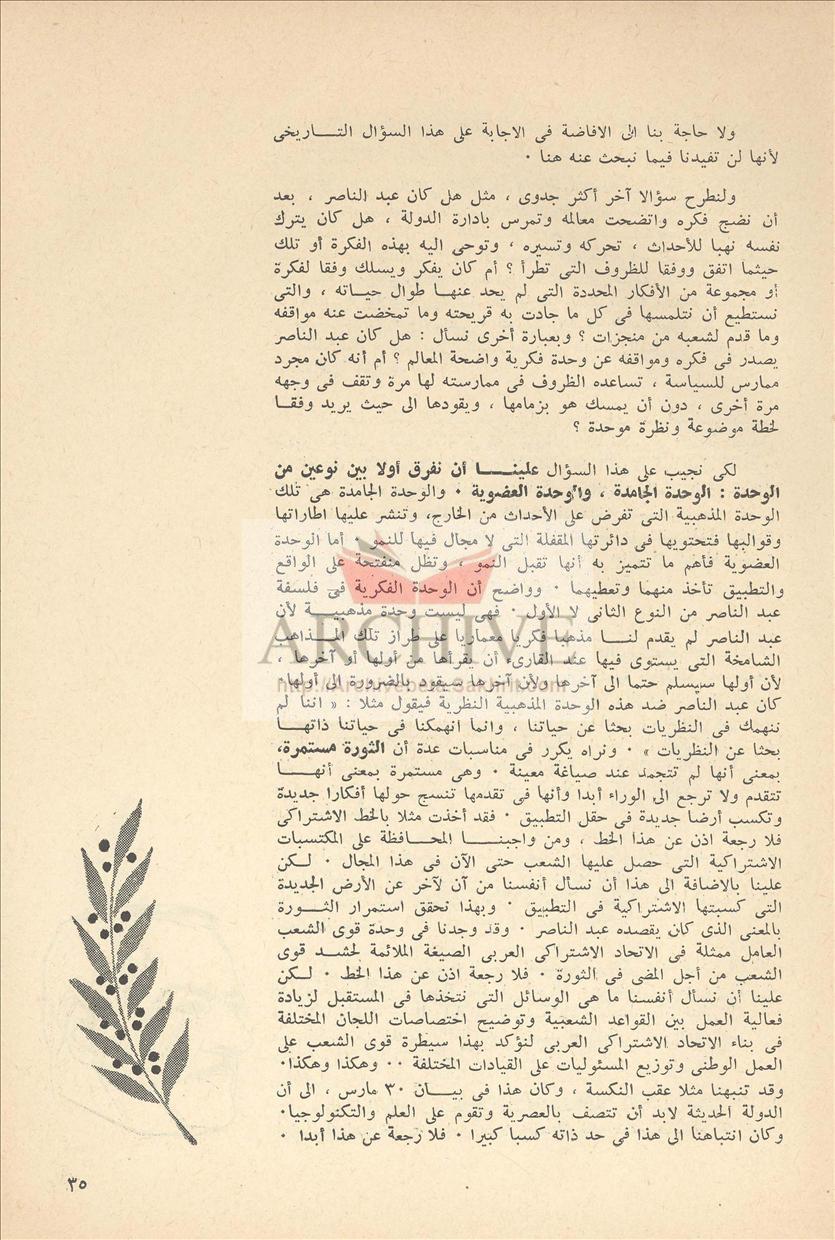 ولا حاجة بنا الى الافاضة فى الاجابة على هذا السؤال التــاريخى
لأنها لن تفيدنا فيما نبحث عنه هنا ·
ولنطرح سؤالا آخر أكثر جدوى ، مثل هل كان عبد الناصر ، بعد
أن نضج فكره واتضحت معالمه وتمرس بادارة الدولة ، هل كان يترك
نفسه نهبا للأحداث ، تحركه وتسيره ، وتوحى اليه بهذه الفكرة أو تلك
حيثما اتفق ووفقا للظروف التى تطرأ ؟ أم كان يفكر ويسلك وفقا لفكرة
أو مجموعة من الأفكار المحددة التى لم يحد عنهــا طوال حيــاته ، والتى
نستطيع أن نتلمسها فى كل ما جادت به قريحته وما تمخضت عنه مواقفه
وما قدم لشعبه من منجزات ؟ وبعبارة أخرى نسأل : هل كان عبد الناصر
يصدر فى فكره ومواقفه عن وحدة فكرية واضحة المعالم ؟ أم أنه كان مجرد
ممارس للسياسة ، تساعده الظروف فى ممارسته لها مرة وتقف فى وجهه
مرة أخرى ، دون أن يمسك هو بزمامها ، ويقودها الى حيث يريد وفقــا
لخطة موضوعة ونظرة موحدة ؟
لكى نجيب على هذا السؤال علينــــا أن نفرق أولا بين نوعين من
الوحدة : الوحدة الجامدة ، والوحدة العضوية · والوحدة الجامدة هى تلك
الوحدة المذهبية التى تفرض على الأحداث من الخارج، وتنشر عليها اطاراتها
وقوالبها فتحتويها فى دائرتها المقفلة التى لا مجال فيها للنمو · أما الوحدة
العضوية فأهم ما تتميز به أنها تقبل النمو ، وتظل منفتحة على الواقع
والتطبيق تأخذ منهما وتعطيهما · وواضح أن الوحدة الفكرية فى فلسفة
عبد الناصر من النوع الثانى لا الأول · فهى ليست وحدة مذهبيــة لأن
عبد الناصر لم يقدم لنــا مذهبا فكريا معماريا على طراز تلك المــذاهب
الشامخة التى يستوى فيها عند القارىء أن يقرأها من أولها أو آخرها ،
لأن أولها سيسلم حتما الى آخرها ولأن آخرها سيقود بالضرورة الى أولها·
كان عبد الناصر ضد هذه الوحدة المذهبية النظرية فيقول مثلا : « اننا لم
ننهمك فى النظريات بحثا عن حياتنا ، وانما انهمكنا فى حياتنا ذاتهــا
بحثا عن النظريات » · ونراه يكرر فى مناسبات عدة أن الثورة مستمرة،
بمعنى أنها لم تتجمد عند صياغة معينة · وهى مستمرة بمعنى أنهــا
تتقدم ولا ترجع الى الوراء أبدا وأنها فى تقدمها تنسج حولها أفكارا جديدة
وتكسب أرضا جديدة فى حقل التطبيق · فقد أخذت مثلا بالخط الاشتراكى
فلا رجعة اذن عن هذا الخط ، ومن واجبنــا المحــافظة على المكتسبات
الاشتراكية التى حصل عليها الشعب حتى الآن فى هذا المجال · لــكن
علينا بالاضافة الى هذا أن نسأل أنفسنا من آن لآخر عن الأرض الجديدة
التى كسبتها الاشتراكية فى التطبيق · وبهذا نحقق استمرار الثــورة
بالمعنى الذى كان يقصده عبد الناصر · وقد وجدنا فى وحدة قوى الشعب
العامل ممثلة فى الاتحاد الاشتراكى العربى الصيغة الملائمة لحشــد قوى
الشعب من أجل المضى فى الثورة · فلا رجعة اذن عن هذا الخط · لــكن
علينا أن نسأل أنفسنا ما هى الوسائل التى نتخذها فى المستقبل لزيادة
فعالية العمل بين القواعد الشعبية وتوضيح اختصاصات اللجان المختلفة
فى بناء الاتحاد الاشتراكى العربى لنؤكد بهذا سيطرة قوى الشعب على
العمل الوطنى وتوزيع المسئوليات على القيادات المختلفة ·· وهكذا وهكذا·
وقد تنبهنا مثلا عقب النكسة ، وكان هذا فى بيــان ٣٠ مارس ، الى أن
الدولة الحديثة لابد أن تتصف بالعصرية وتقوم على العلم والتكنولوجيا·
وكان انتباهنا الى هذا فى حد ذاته كسبا كبيرا · فلا رجعة عن هذا أبدا ·
٣٥
ARCHIVE
http://Archivebeta.Sakhrit.com